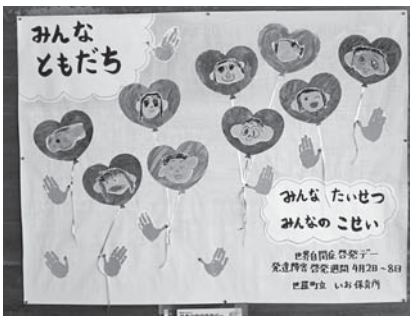 みんな
ともだち
みんな たいせつ
みんなの こせい
世界自閉症啓発デー
発達障害啓発週間 4月2日~8日
世羅町立 いお保育所